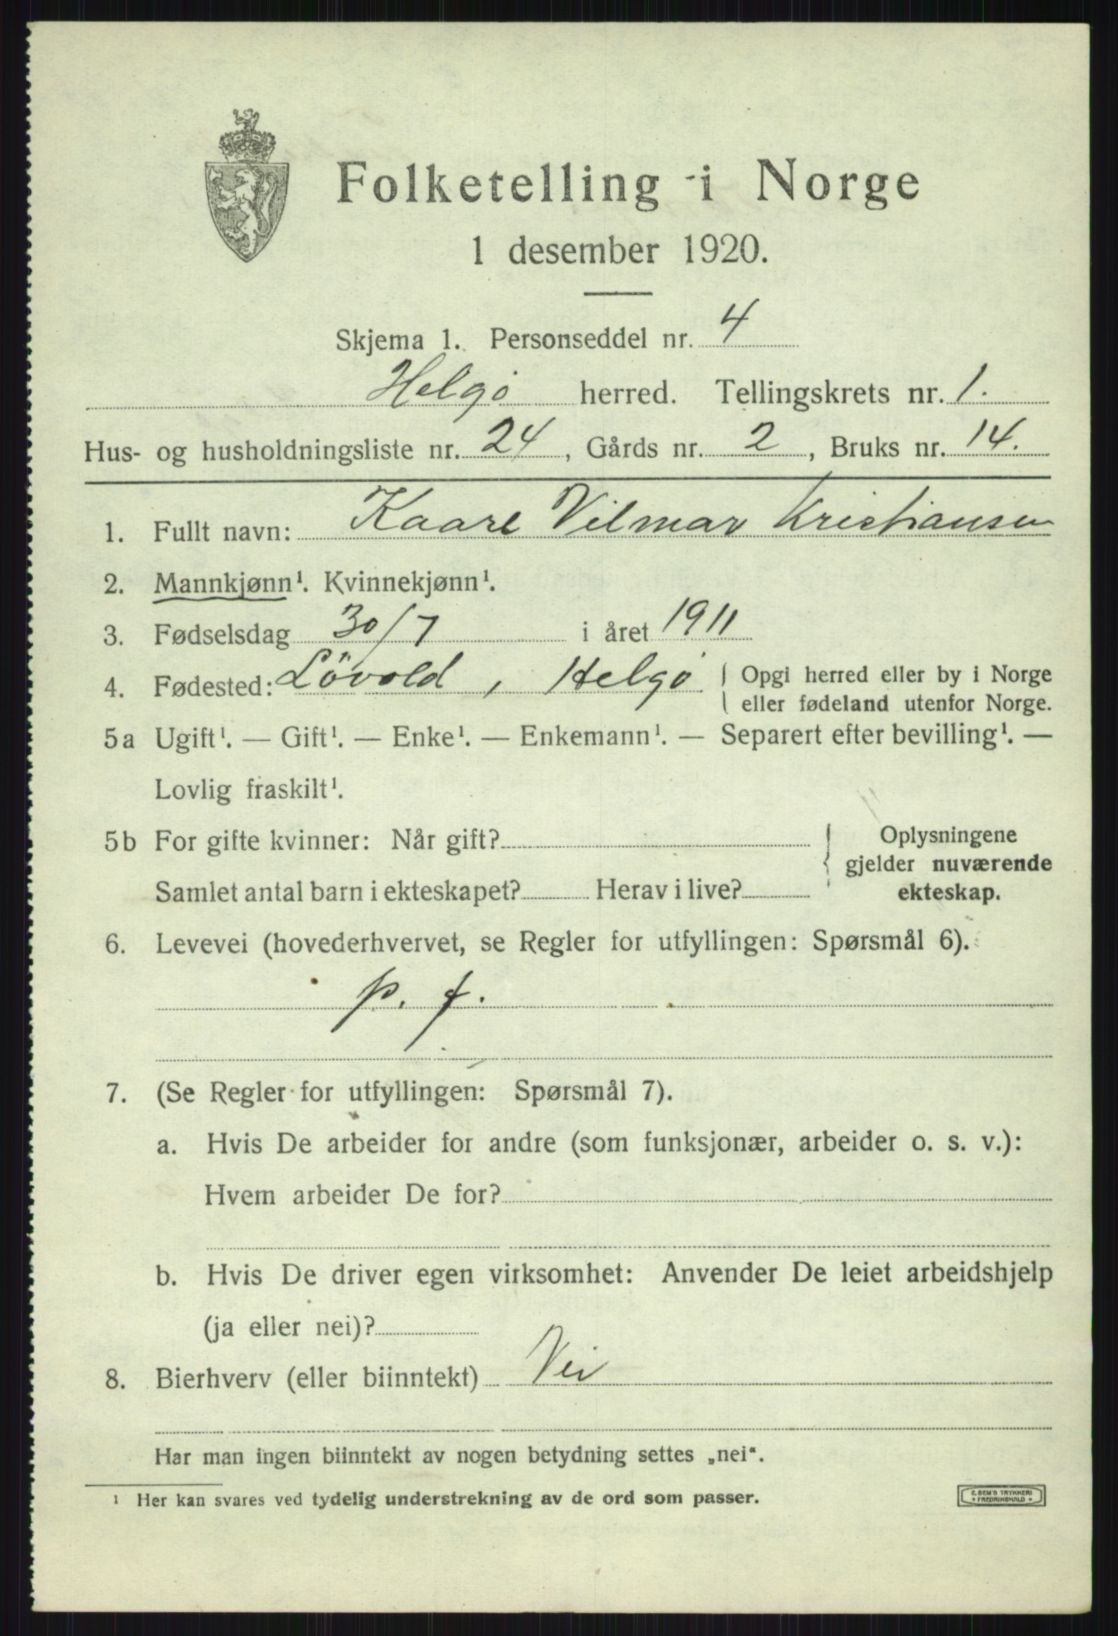 Folketelling i Norge
1 desember 1920.
Skjema 1. Personseddel nr. 4
Helgö herred. Tellingskrets nr. 1.
Hus- og husholdningsliste nr. 24, Gårds nr. 2, Bruks nr. 14.
1. Fullt navn: Kaare Vilmar Kristiansen
2. Mannkjønn¹. Kvinnekjønn¹.
3. Fødselsdag 30/7 i året 1911
4. Fødested: Lövold, Helgö { Opgi herred eller by i Norge
eller fødeland utenfor Norge.
5a Ugift¹. — Gift¹. — Enke¹. — Enkemann¹. — Separert efter bevilling¹. —
Lovlig fraskilt¹.
5b For gifte kvinner: Når gift? { Oplysningene
gjelder nuværende
Samlet antal barn i ekteskapet? Herav i live? ekteskap.
6. Levevei (hovederhvervet, se Regler for utfyllingen: Spørsmål 6).
p. f.
7. (Se Regler for utfyllingen: Spørsmål 7).
a. Hvis De arbeider for andre (som funksjonær, arbeider o. s. v.):
Hvem arbeider De for?
b. Hvis De driver egen virksomhet: Anvender De leiet arbeidshjelp
(ja eller nei)?
8. Bierhverv (eller biinntekt) Nei
Har man ingen biinntekt av nogen betydning settes „nei“.
¹ Her kan svares ved tydelig understrekning av de ord som passer.
E. SEM'S TRYKKERI
FREDRIKSHALD